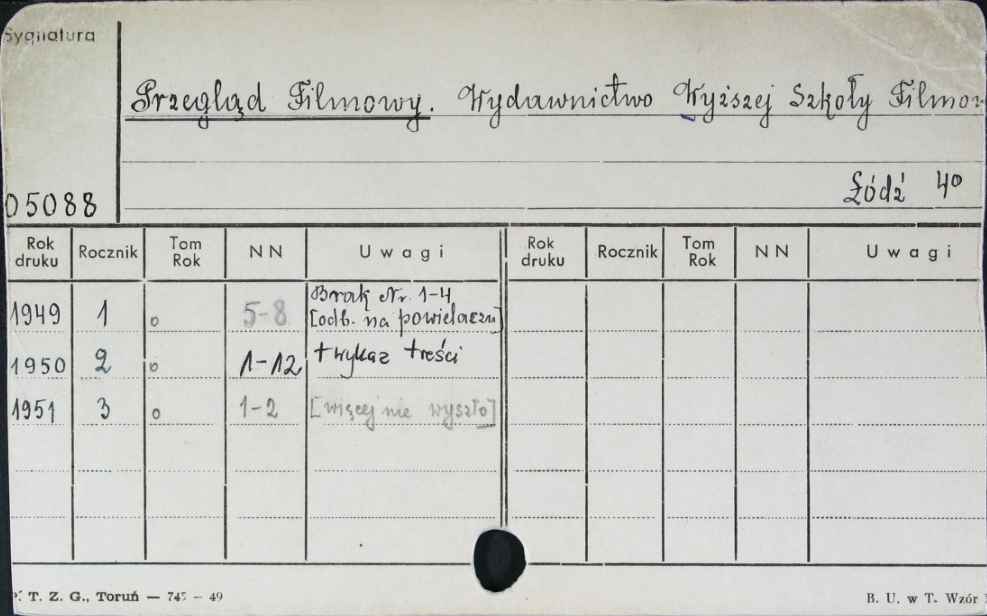 Sygnatura
Przegląd Filmowy. Wydawnictwo Wyższej Szkoły Filmow
Łódź 4⁰
05088
Rok druku Rocznik Tom Rok NN Uwagi Rok druku Rocznik Tom Rok NN Uwagi
1949 1 o 5-8 Brak Nr. 1-4
[odb. na powielaczu]
1950 2 o 1-12 + wykaz treści
1951 3 o 1-2 [więcej nie wyszło]
T. Z. G., Toruń — 745 — 49
B. U. w T. Wzór